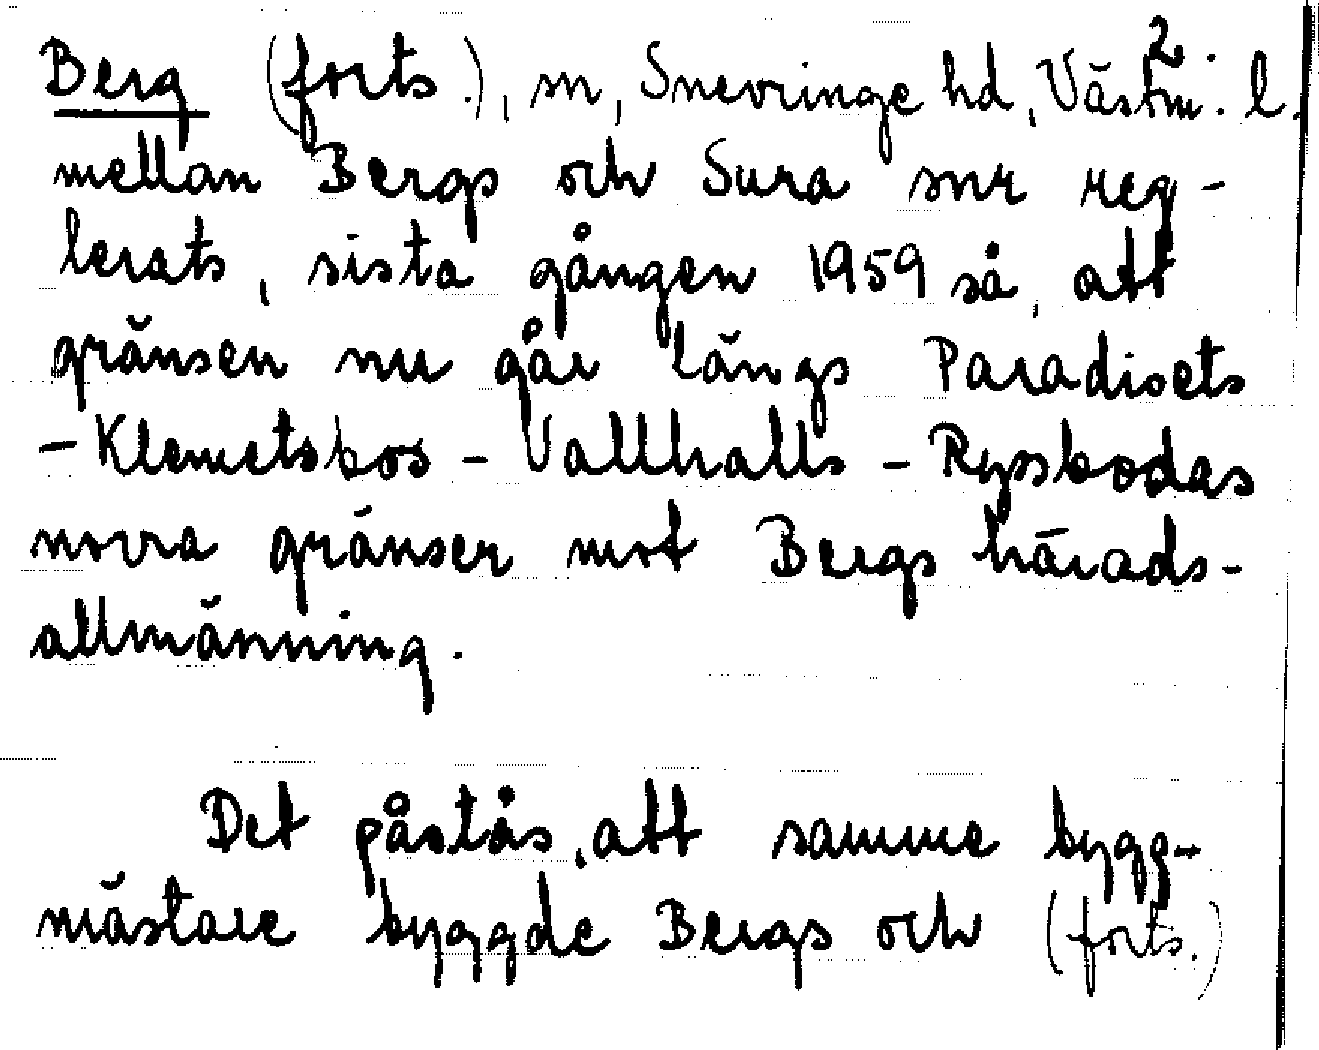 Berg (forts.), sn, Snevringe hd, Västm. l. 2.
mellan Bergs och Sura snr reg-
lerats, sista gången 1959 så, att
gränsen nu går längs Paradisets
- Klemetsbos - Vallhalls - Ryssbodas
norra gränser mot Bergs härads-
allmänning.
Det påstås, att samme bygg-
mästare byggde Bergs och (forts.)